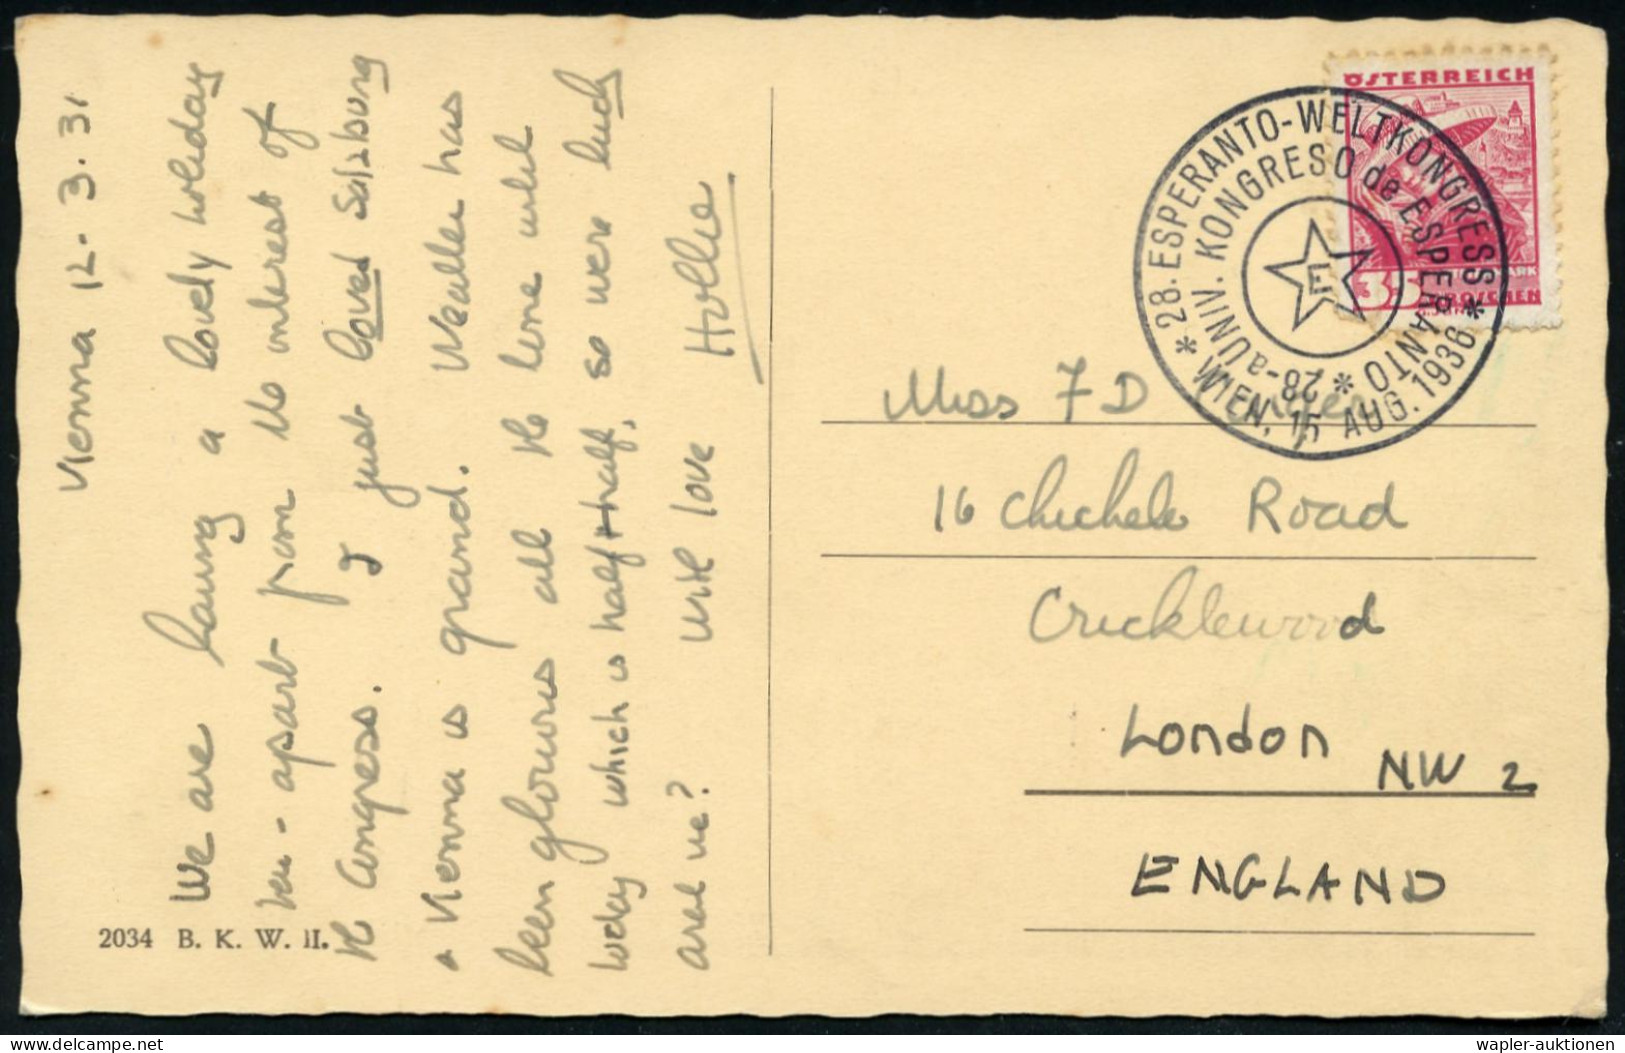 Vienna 12.3.31
We are having a lovely holiday
here - apart from the interest of
the Congress. I just loved Salzburg
& Vienna is grand. Weather has
been glorious all the time until
today which is half & half, so were lucky
arent we? with love Hollie
2034 B. K. W. II.
ÖSTERREICH
35
GROSCHEN
* 28. ESPERANTO-WELTKONGRESS *
WIEN, 15 AUG. 1936
28-a UNIV. KONGRESO de ESPERANTO *
E
Miss F D
16 Chichele Road
Cricklewood
London NW 2
ENGLAND
wapler-auktionen
www.delcampe.net